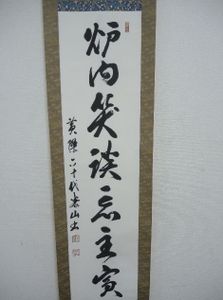 炉内笑談忘主賓
黄檗六十代崇山書